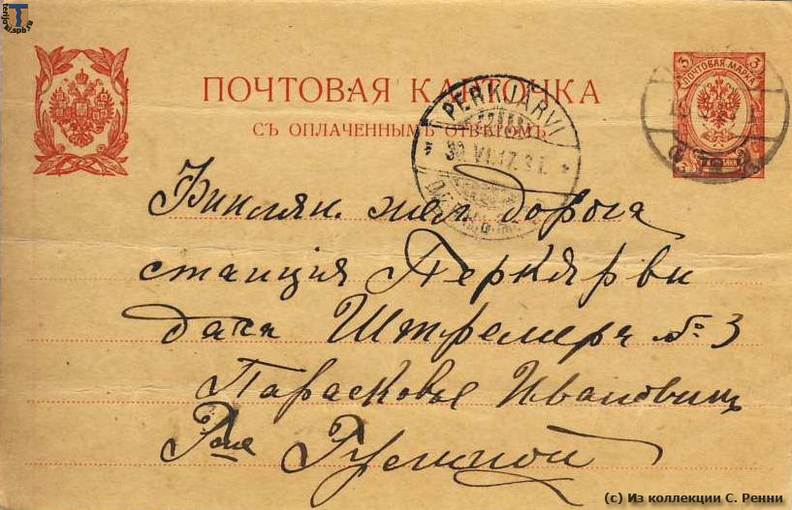 terijoki.spb.ru
ПОЧТОВАЯ КАРТОЧКА
СЪ ОПЛАЧЕННЫМЪ ОТВѢТОМЪ.
3 ПОЧТОВАЯ МАРКА 3
PERKJÄRVI
30.VI.17.
Финлян. жел. дорога
станция Перкярви
дача Штремера № 3
Парасковье Ивановнѣ
(c) Из коллекции С. Ренни